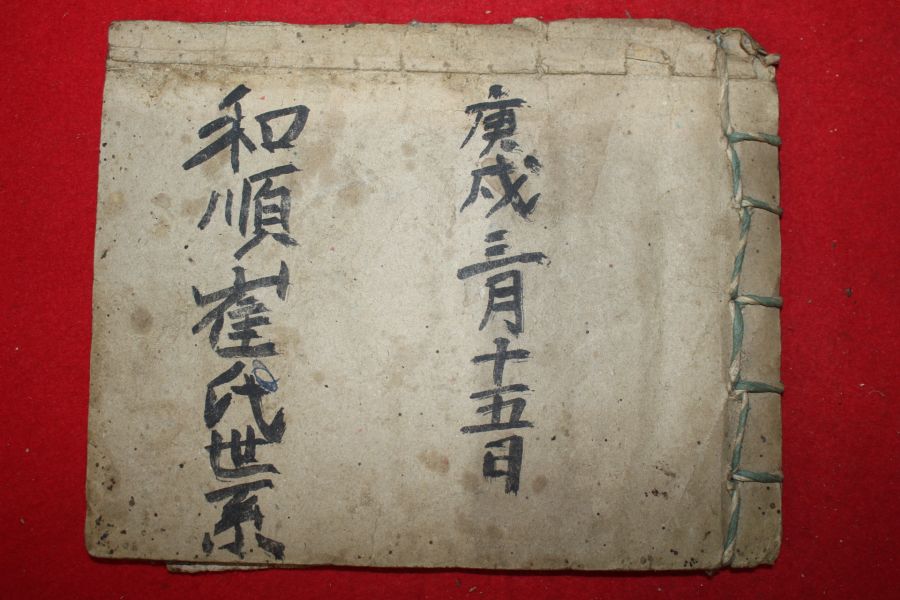 庚戌三月十五日
和順崔氏世系